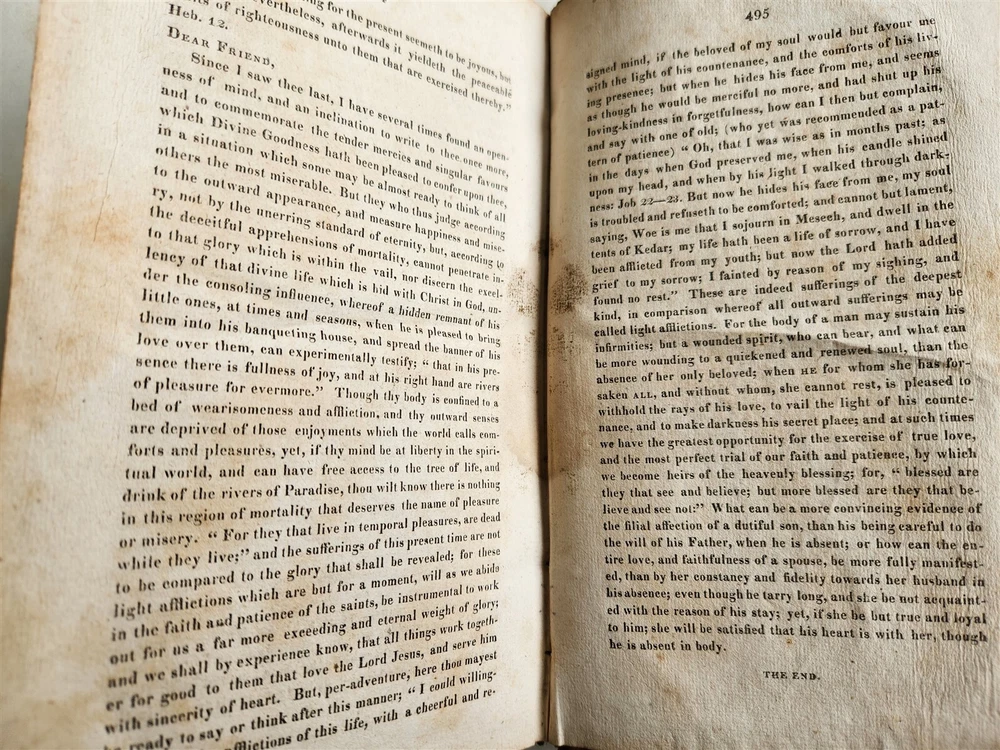 ing for the present seemeth to be joyous, but
nevertheless, afterwards it yieldeth the peaceable
of righteousness unto them that are exercised thereby."
Heb. 12.
DEAR FRIEND,
Since I saw thee last, I have several times found an open-
ness of mind, and an inclination to write to thee once more,
and to commemorate the tender mercies and singular favours
which Divine Goodness hath been pleased to confer upon thee,
in a situation which some may be almost ready to think of all
others the most miserable. But they who thus judge according
to the outward appearance, and measure happiness and mise-
ry, not by the unerring standard of eternity, but, according to
the deceitful apprehensions of mortality, cannot penetrate in-
to that glory which is within the vail, nor discern the excel-
lency of that divine life which is hid with Christ in God, un-
der the consoling influence, whereof a hidden remnant of his
little ones, at times and seasons, when he is pleased to bring
them into his banqueting house, and spread the banner of his
love over them, can experimentally testify; “ that in his pre-
sence there is fullness of joy, and at his right hand are rivers
of pleasure for evermore.” Though thy body is confined to a
bed of wearisomeness and affliction, and thy outward senses
are deprived of those enjoyments which the world calls com-
forts and pleasures, yet, if thy mind be at liberty in the spiri-
tual world, and can have free access to the tree of life, and
drink of the rivers of Paradise, thou wilt know there is nothing
in this region of mortality that deserves the name of pleasure
or misery. “ For they that live in temporal pleasures, are dead
while they live;” and the sufferings of this present time are not
to be compared to the glory that shall be revealed; for these
light afflictions which are but for a moment, will as we abide
in the faith and patience of the saints, be instrumental to work
out for us a far more exceeding and eternal weight of glory;
and we shall by experience know, that all things work togeth-
er for good to them that love the Lord Jesus, and serve him
with sincerity of heart. But, per-adventure, here thou mayest
be ready to say or think after this manner; “ I could willing-
afflictions of this life, with a cheerful and re-
495
signed mind, if the beloved of my soul would but favour me
with the light of his countenance, and the comforts of his liv-
ing presence; but when he hides his face from me, and seems
as though he would be merciful no more, and had shut up his
loving-kindness in forgetfulness, how can I then but complain,
and say with one of old; (who yet was recommended as a pat-
tern of patience) “ Oh, that I was wise as in months past; as
in the days when God preserved me, when his candle shined
upon my head, and when by his light I walked through dark-
ness: Job 22—23. But now he hides his face from me, my soul
is troubled and refuseth to be comforted; and cannot but lament,
saying, Woe is me that I sojourn in Meseeh, and dwell in the
tents of Kedar; my life hath been a life of sorrow, and I have
been afflicted from my youth; but now the Lord hath added
grief to my sorrow; I fainted by reason of my sighing, and
found no rest.” These are indeed sufferings of the deepest
kind, in comparison whereof all outward sufferings may be
called light afflictions. For the body of a man may sustain his
infirmities; but a wounded spirit, who can bear, and what can
be more wounding to a quickened and renewed soul, than the
absence of her only beloved; when HE for whom she has for-
saken ALL, and without whom, she cannot rest, is pleased to
withhold the rays of his love, to vail the light of his counte-
nance, and to make darkness his secret place; and at such times
we have the greatest opportunity for the exercise of true love,
and the most perfect trial of our faith and patience, by which
we become heirs of the heavenly blessing; for, “ blessed are
they that see and believe; but more blessed are they that be-
lieve and see not:” What can be a more convincing evidence of
the filial affection of a dutiful son, than his being careful to do
the will of his Father, when he is absent; or how can the en-
tire love, and faithfulness of a spouse, be more fully manifest-
ed, than by her constancy and fidelity towards her husband in
his absence; even though he tarry long, and she be not acquaint-
ed with the reason of his stay; yet, if she be but true and loyal
to him; she will be satisfied that his heart is with her, though
he is absent in body.
THE END.